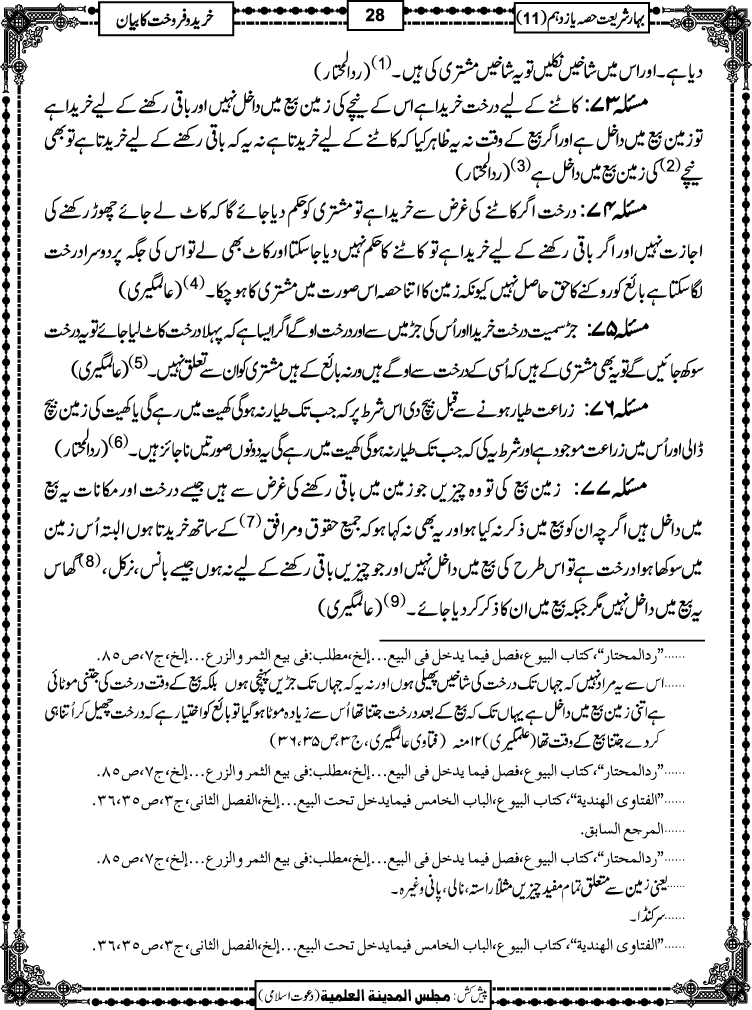 بہارشریعت حصہ یازدہم (11)
28
خرید و فروخت کا بیان
دیا ہے۔ اور اس میں شاخیں نکلیں تو یہ شاخیں مشتری کی ہیں۔ (1) (ردالمحتار)
مسئلہ ۷۳: کاٹنے کے لیے درخت خریدا ہے اس کے نیچے کی زمین بیع میں داخل نہیں اور باقی رکھنے کے لیے خریدا ہے
تو زمین بیع میں داخل ہے اور اگر بیع کے وقت نہ یہ ظاہر کیا کہ کاٹنے کے لیے خریدتا ہے نہ یہ کہ باقی رکھنے کے لیے خریدتا ہے تو بھی
نیچے (2) کی زمین بیع میں داخل ہے (3) (ردالمحتار)
مسئلہ ۷۴: درخت اگر کاٹنے کی غرض سے خریدا ہے تو مشتری کو حکم دیا جائے گا کہ کاٹ لے جائے چھوڑ رکھنے کی
اجازت نہیں اور اگر باقی رکھنے کے لیے خریدا ہے تو کاٹنے کا حکم نہیں دیا جاسکتا اور کاٹ بھی لے تو اس کی جگہ پر دوسرا درخت
لگا سکتا ہے بائع کو روکنے کا حق حاصل نہیں کیونکہ زمین کا اتنا حصہ اس صورت میں مشتری کا ہو چکا۔ (4) (عالمگیری)
مسئلہ ۷۵: جڑ سمیت درخت خریدا اور اُس کی جڑ میں سے اور درخت اوگے اگر ایسا ہے کہ پہلا درخت کاٹ لیا جائے تو یہ درخت
سوکھ جائیں گے تو یہ بھی مشتری کے ہیں کہ اُسی کے درخت سے اوگے ہیں ورنہ بائع کے ہیں مشتری کو ان سے تعلق نہیں۔ (5) (عالمگیری)
مسئلہ ۷۶: زراعت طیار ہونے سے قبل بیچ دی اس شرط پر کہ جب تک طیار نہ ہوگی کھیت میں رہے گی یا کھیت کی زمین بیچ
ڈالی اور اُس میں زراعت موجود ہے اور شرط یہ کی کہ جب تک طیار نہ ہوگی کھیت میں رہے گی یہ دونوں صورتیں ناجائز ہیں۔ (6) (ردالمحتار)
مسئلہ ۷۷: زمین بیع کی تو وہ چیزیں جو زمین میں باقی رکھنے کی غرض سے ہیں جیسے درخت اور مکانات یہ بیع
میں داخل ہیں اگر چہ ان کو بیع میں ذکر نہ کیا ہو اور یہ بھی نہ کہا ہو کہ جمیع حقوق و مرافق (7) کے ساتھ خریدتا ہوں البتہ اُس زمین
میں سوکھا ہوا درخت ہے تو اس طرح کی بیع میں داخل نہیں اور جو چیزیں باقی رکھنے کے لیے نہ ہوں جیسے بانس، نرکل، (8) گھاس
یہ بیع میں داخل نہیں مگر جبکہ بیع میں ان کا ذکر کردیا جائے۔ (9) (عالمگیری)
......”ردالمحتار“، کتاب البیوع، فصل فیما یدخل فی البیع...إلخ، مطلب: فی بیع الثمر والزرع...إلخ، ج۷، ص۸۵.
......اس سے یہ مراد نہیں کہ جہاں تک درخت کی شاخیں پھیلی ہوں اور نہ یہ کہ جہاں تک جڑیں پہنچی ہوں بلکہ بیع کے وقت درخت کی جتنی موٹائی
ہے اتنی زمین بیع میں داخل ہے یہاں تک کہ بیع کے بعد درخت جتنا تھا اُس سے زیادہ موٹا ہوگیا تو بائع کو اختیار ہے کہ درخت چھیل کر اُتنا ہی
کردے جتنا بیع کے وقت تھا (علمگیری) ۱۲ منہ (فتاوی عالمگیری، ج۳، ص۳۵، ۳۶)
......”ردالمحتار“، کتاب البیوع، فصل فیما یدخل فی البیع...إلخ، مطلب: فی بیع الثمر والزرع...إلخ، ج۷، ص۸۵.
......”الفتاوی الهندية“، کتاب البیوع، الباب الخامس فیمایدخل تحت البیع...إلخ، الفصل الثانی، ج۳، ص۳۵، ۳۶.
......المرجع السابق.
......”ردالمحتار“، کتاب البیوع، فصل فیما یدخل فی البیع...إلخ، مطلب: فی بیع الثمر والزرع...إلخ، ج۷، ص۸۵.
......یعنی زمین سے متعلق تمام مفید چیزیں مثلاً راستہ، نالی، پانی وغیرہ۔
......سرکنڈا۔
......”الفتاوی الهندية“، کتاب البیوع، الباب الخامس فیمایدخل تحت البیع...إلخ، الفصل الثانی، ج۳، ص۳۵، ۳۶.
پیش کش: مجلس المدینة العلمیة (دعوت اسلامی)